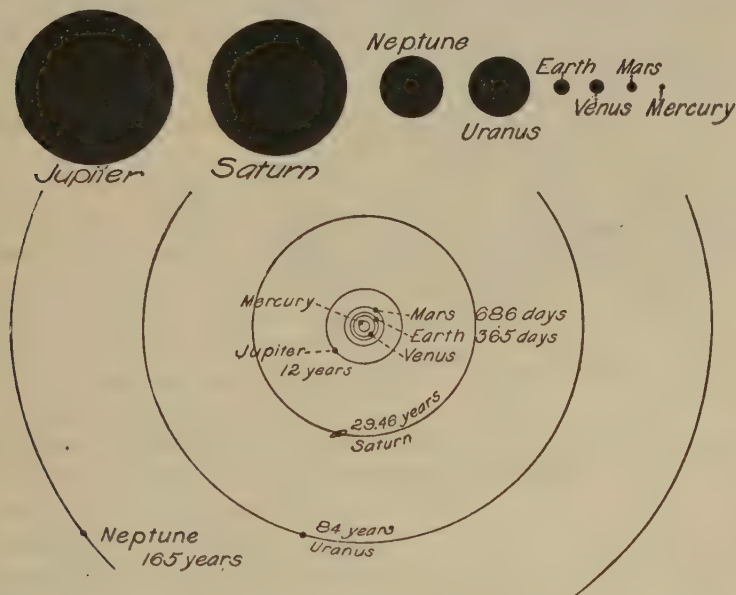 Neptune
Earth Mars
Venus Mercury
Uranus
Jupiter Saturn
Mercury
Mars 686 days
Earth 365 days
Venus
Jupiter
12 years
29.46 years
Saturn
84 years
Uranus
Neptune
165 years